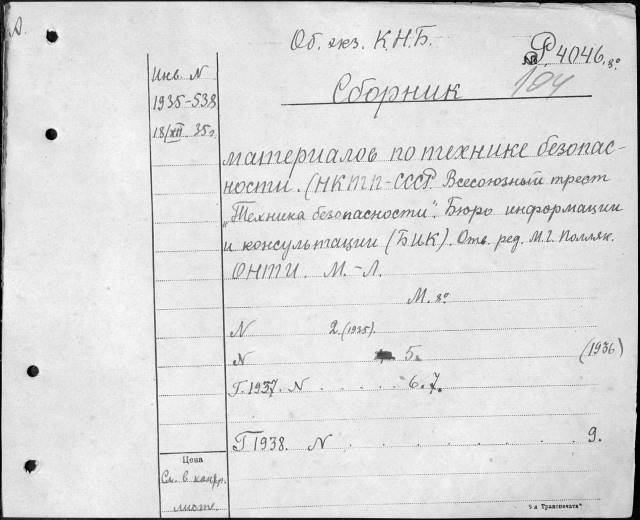 А.
Об. экз. К.Н.Б.
Р 4046. 8°
104
Инв. N
1935-538
18/XII 35г.
Сборник
материалов по технике безопас-
ности. (НКТП-СССР. Всесоюзный трест
„Техника безопасности". Бюро информации
и консультации (БИК). Отв. ред. М.Г. Полляк.
ОНТИ. М.-Л.
М. 8°
N 2. (1935).
N 5. (1936)
Г. 1937. N . . . . . 6. 7.
Г 1938. N . . . . . . . 9.
Цена
См. в контр.
листе.
5-я Транспечать"